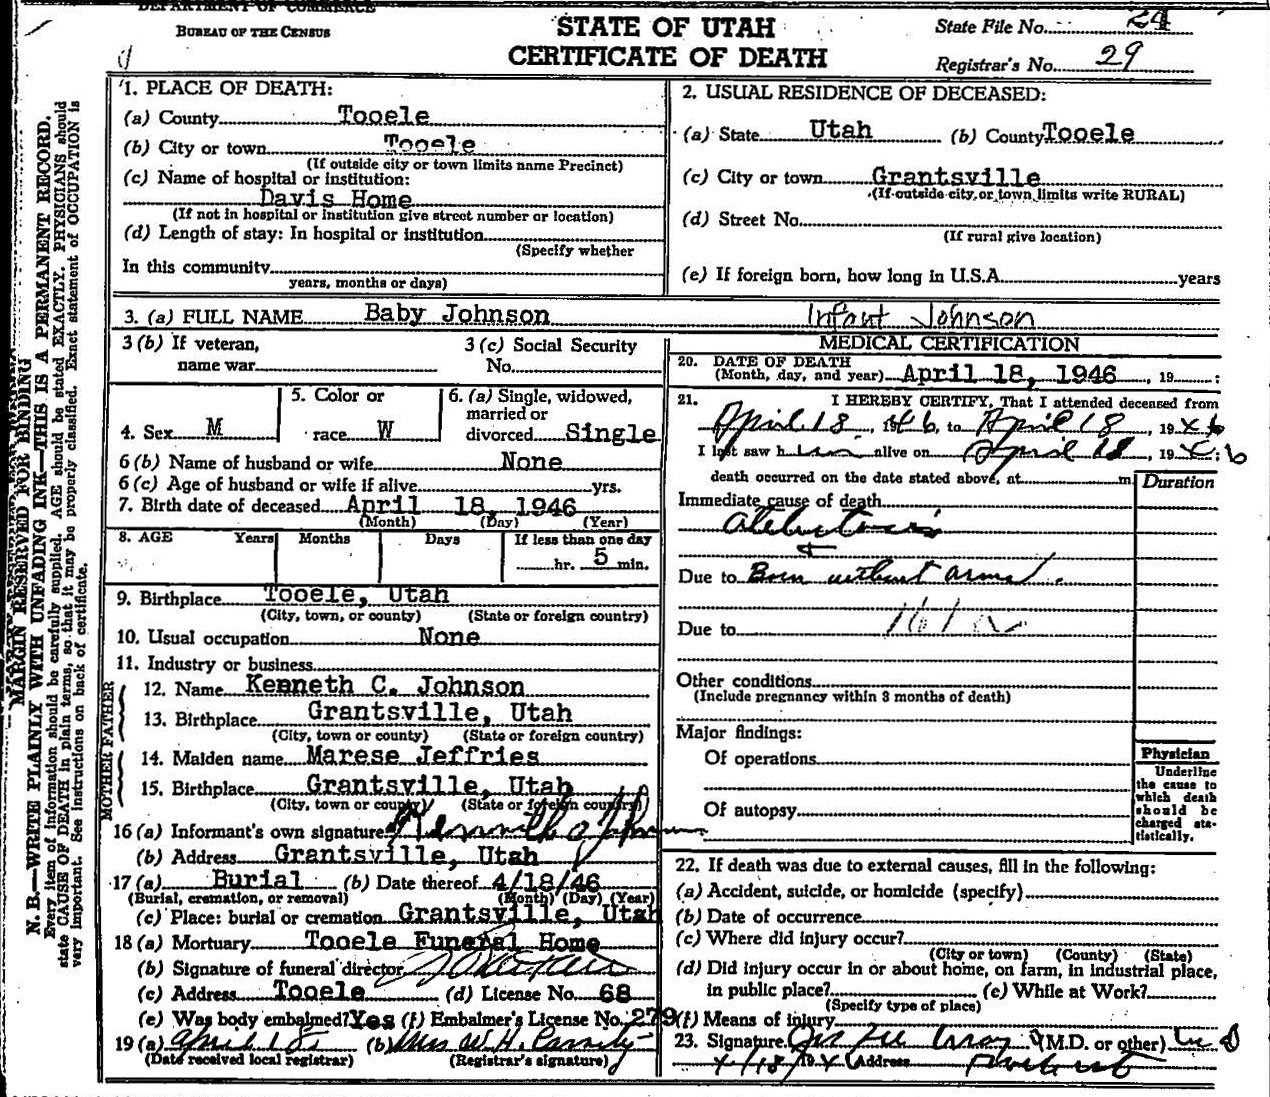 DEPARTMENT OF COMMERCE
BUREAU OF THE CENSUS
STATE OF UTAH
CERTIFICATE OF DEATH
State File No. 24
Registrar's No. 29
MARGIN RESERVED FOR BINDING
N. B.—WRITE PLAINLY WITH UNFADING INK—THIS IS A PERMANENT RECORD.
Every item of information should be carefully supplied. AGE should be stated EXACTLY. PHYSICIANS should
state CAUSE OF DEATH in plain terms, so that it may be properly classified. Exact statement of OCCUPATION is
very important. See instructions on back of certificate.
1. PLACE OF DEATH:
(a) County Tooele
(b) City or town Tooele
(If outside city or town limits name Precinct)
(c) Name of hospital or institution:
Davis Home
(If not in hospital or institution give street number or location)
(d) Length of stay: In hospital or institution
(Specify whether
In this community
years, months or days)
2. USUAL RESIDENCE OF DECEASED:
(a) State Utah (b) County Tooele
(c) City or town Grantsville
(If outside city or town limits write RURAL)
(d) Street No.
(If rural give location)
(e) If foreign born, how long in U.S.A. years
3. (a) FULL NAME Baby Johnson Infant Johnson
3 (b) If veteran, name war
3 (c) Social Security No.
4. Sex M
5. Color or race W
6. (a) Single, widowed, married or divorced Single
6 (b) Name of husband or wife None
6 (c) Age of husband or wife if alive yrs.
7. Birth date of deceased April 18, 1946
(Month) (Day) (Year)
8. AGE Years Months Days If less than one day
hr. 5 min.
9. Birthplace Tooele, Utah
(City, town, or county) (State or foreign country)
10. Usual occupation None
11. Industry or business
FATHER
12. Name Kenneth C. Johnson
13. Birthplace Grantsville, Utah
(City, town or county) (State or foreign country)
MOTHER
14. Maiden name Marese Jeffries
15. Birthplace Grantsville, Utah
(City, town or county) (State or foreign country)
16 (a) Informant's own signature
(b) Address Grantsville, Utah
17 (a) Burial (b) Date thereof 4/18/46
(Burial, cremation, or removal) (Month) (Day) (Year)
(c) Place: burial or cremation Grantsville, Utah
18 (a) Mortuary Tooele Funeral Home
(b) Signature of funeral director
(c) Address Tooele (d) License No. 68
(e) Was body embalmed? Yes (f) Embalmer's License No. 279
19 (a) April 18 (b) Mrs W. H. Cassity
(Date received local registrar) (Registrar's signature)
MEDICAL CERTIFICATION
20. DATE OF DEATH
(Month, day, and year) April 18, 1946, 19
21. I HEREBY CERTIFY, That I attended deceased from
April 18, 1946, to April 18, 1946
I last saw him alive on April 18, 1946
death occurred on the date stated above, at m.
Duration
Immediate cause of death
Due to Born without arms.
Due to
Other conditions
(Include pregnancy within 3 months of death)
Major findings:
Of operations
Of autopsy
Physician
Underline
the cause to
which death
should be
charged sta-
tistically.
22. If death was due to external causes, fill in the following:
(a) Accident, suicide, or homicide (specify)
(b) Date of occurrence
(c) Where did injury occur?
(City or town) (County) (State)
(d) Did injury occur in or about home, on farm, in industrial place,
in public place? (e) While at Work?
(Specify type of place)
(f) Means of injury
23. Signature (M.D. or other) M D
4/18/1946 Address